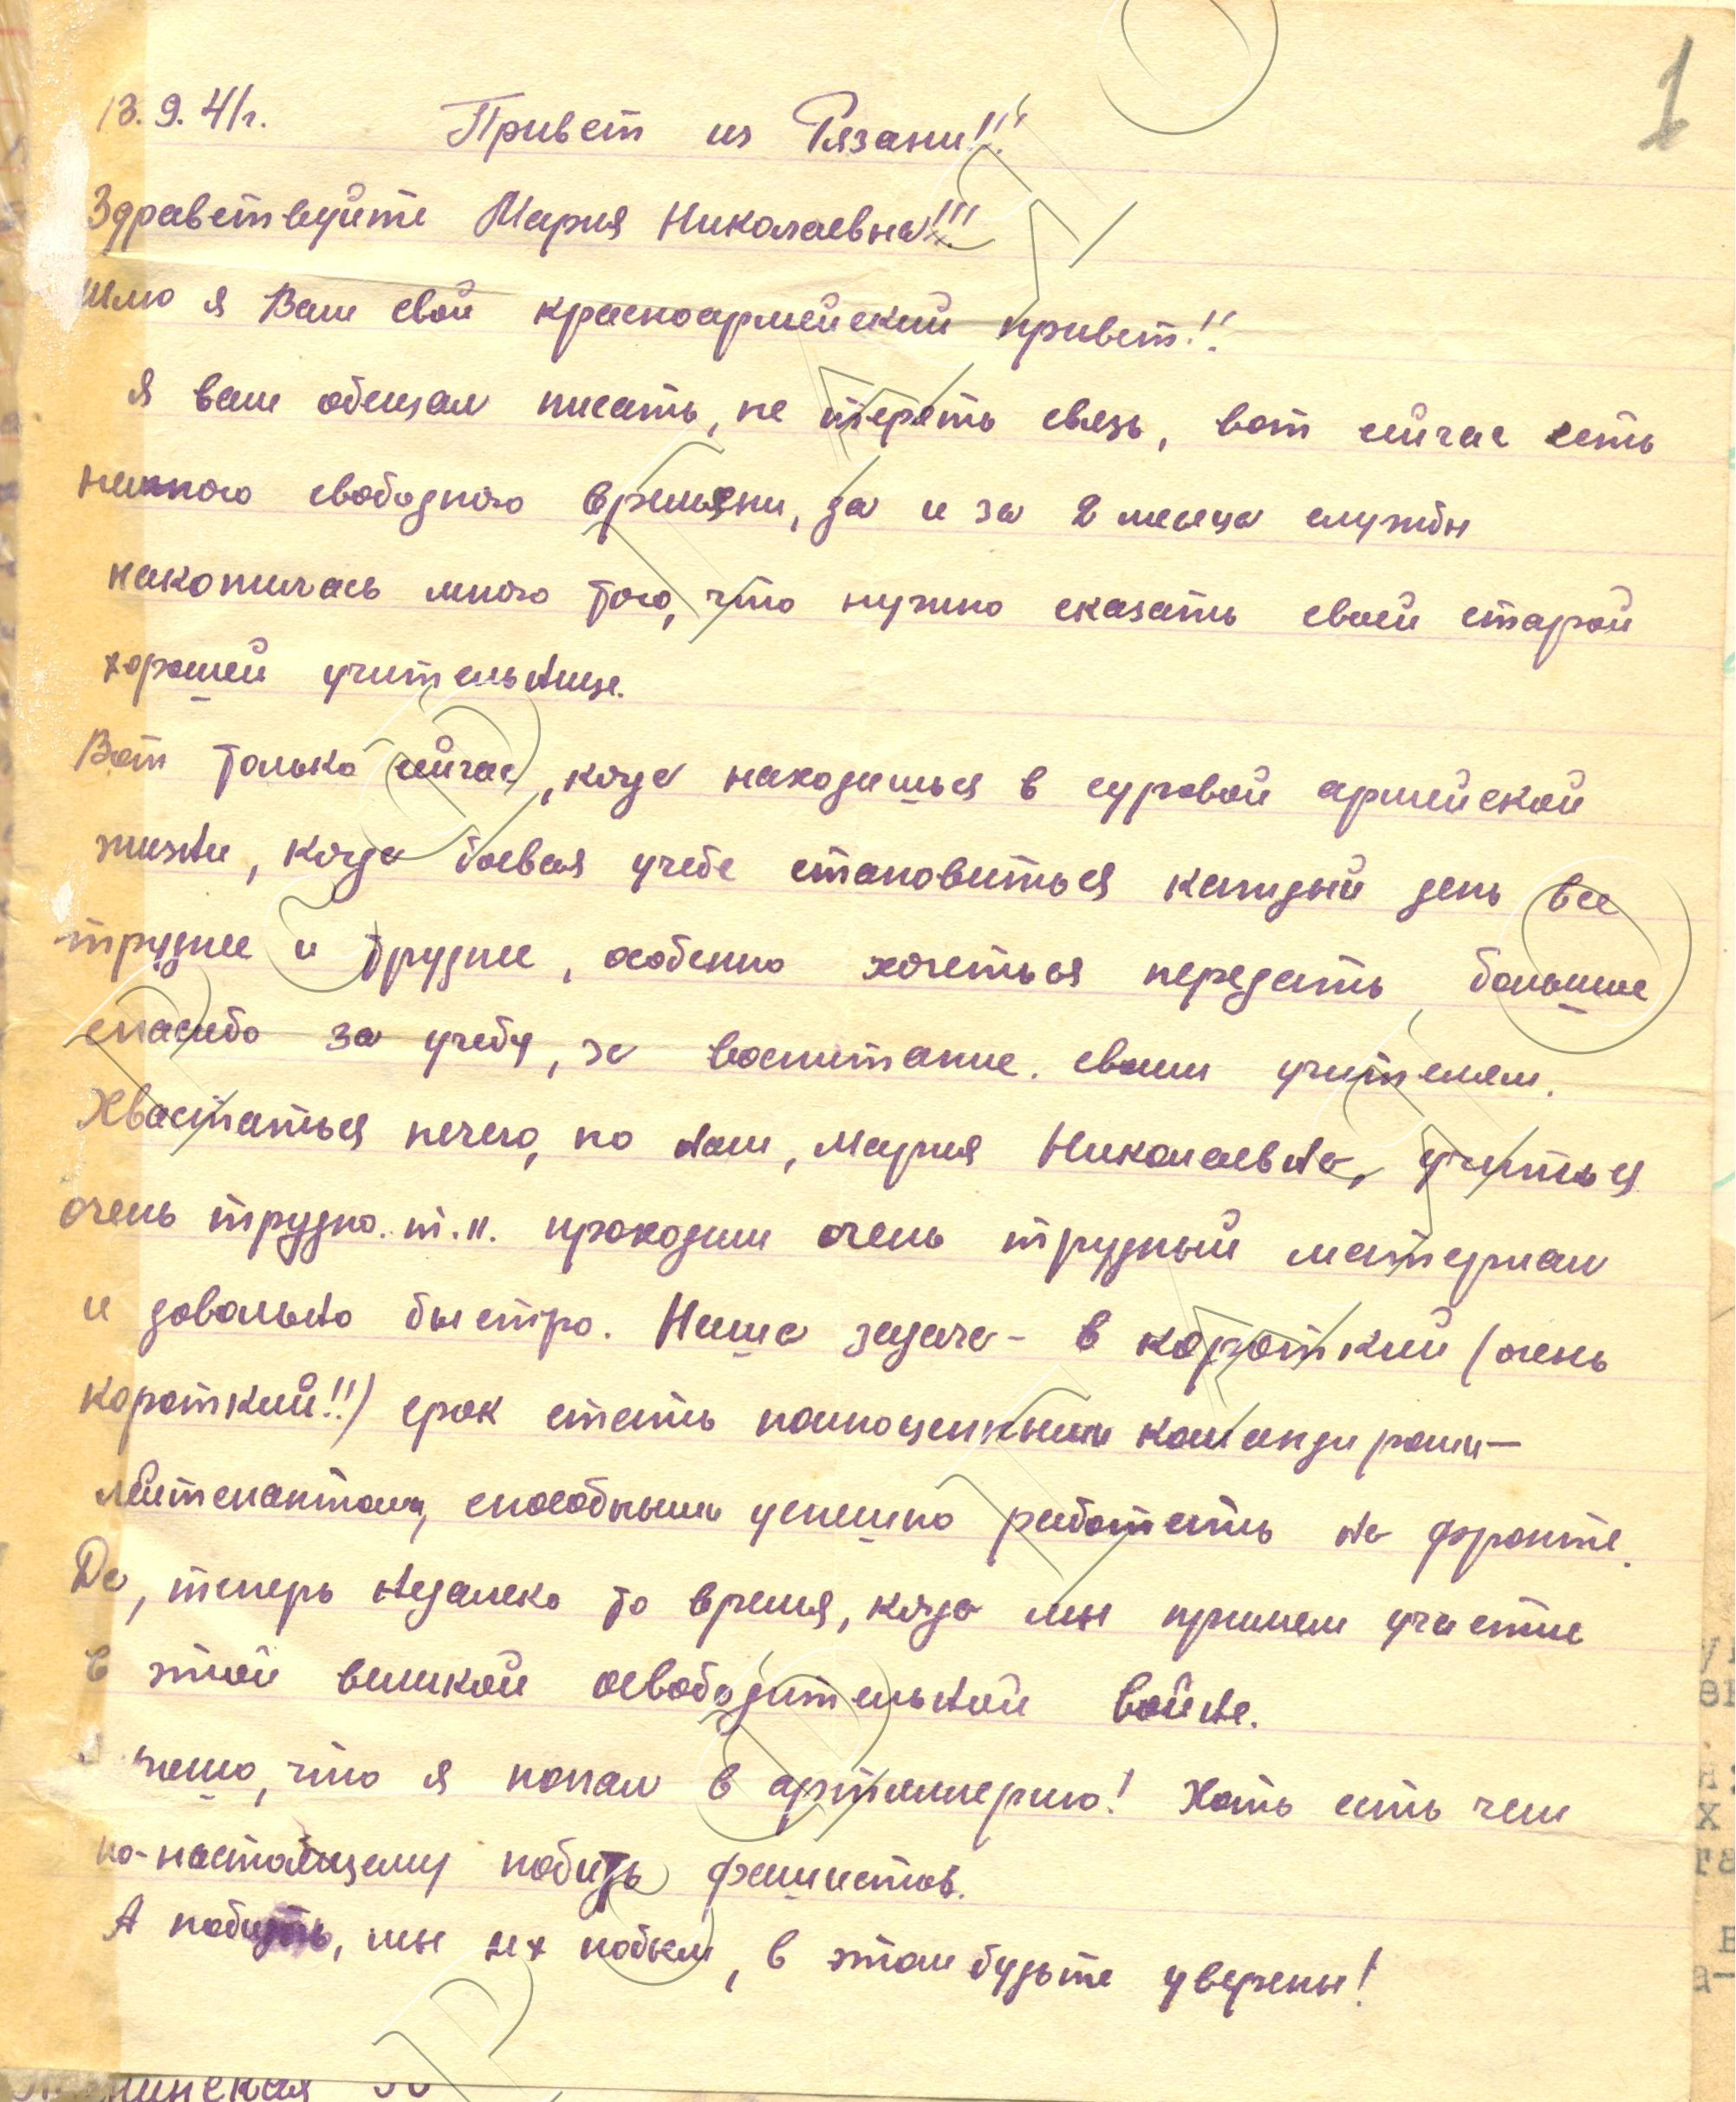 1
13.9.41г. Привет из Рязани!!!
Здравствуйте Мария Николаевна!!!
Шлю я Вам свой красноармейский привет!!
Я вам обещал писать, не терять связь, вот сейчас есть
немного свободного времени, да и за 2 месяца службы
накопилась много того, что нужно сказать своей старой
хорошей учительнице.
Вот только сейчас, когда находишься в суровой армейской
жизни, когда боевая учеба становиться каждый день все
труднее и труднее, особенно хочеться передать большое
спасибо за учебу, за воспитание. своим учителям.
Хвастаться нечего, но нам, Мария Николаевна, учиться
очень трудно. т.к. проходим очень трудный материал
и довольно быстро. Наша задача - в короткий (очень
короткий!!) срок стать полноценными командирами -
лейтенантами, способными успешно работать на фронте.
Да, теперь недалеко то время, когда мы примем участие
в этой великой освободительной войне.
что я попал в артиллерию! Хоть есть чем
по-настоящему побить фашистов.
А побить, мы их побьем, в этом будьте уверены!